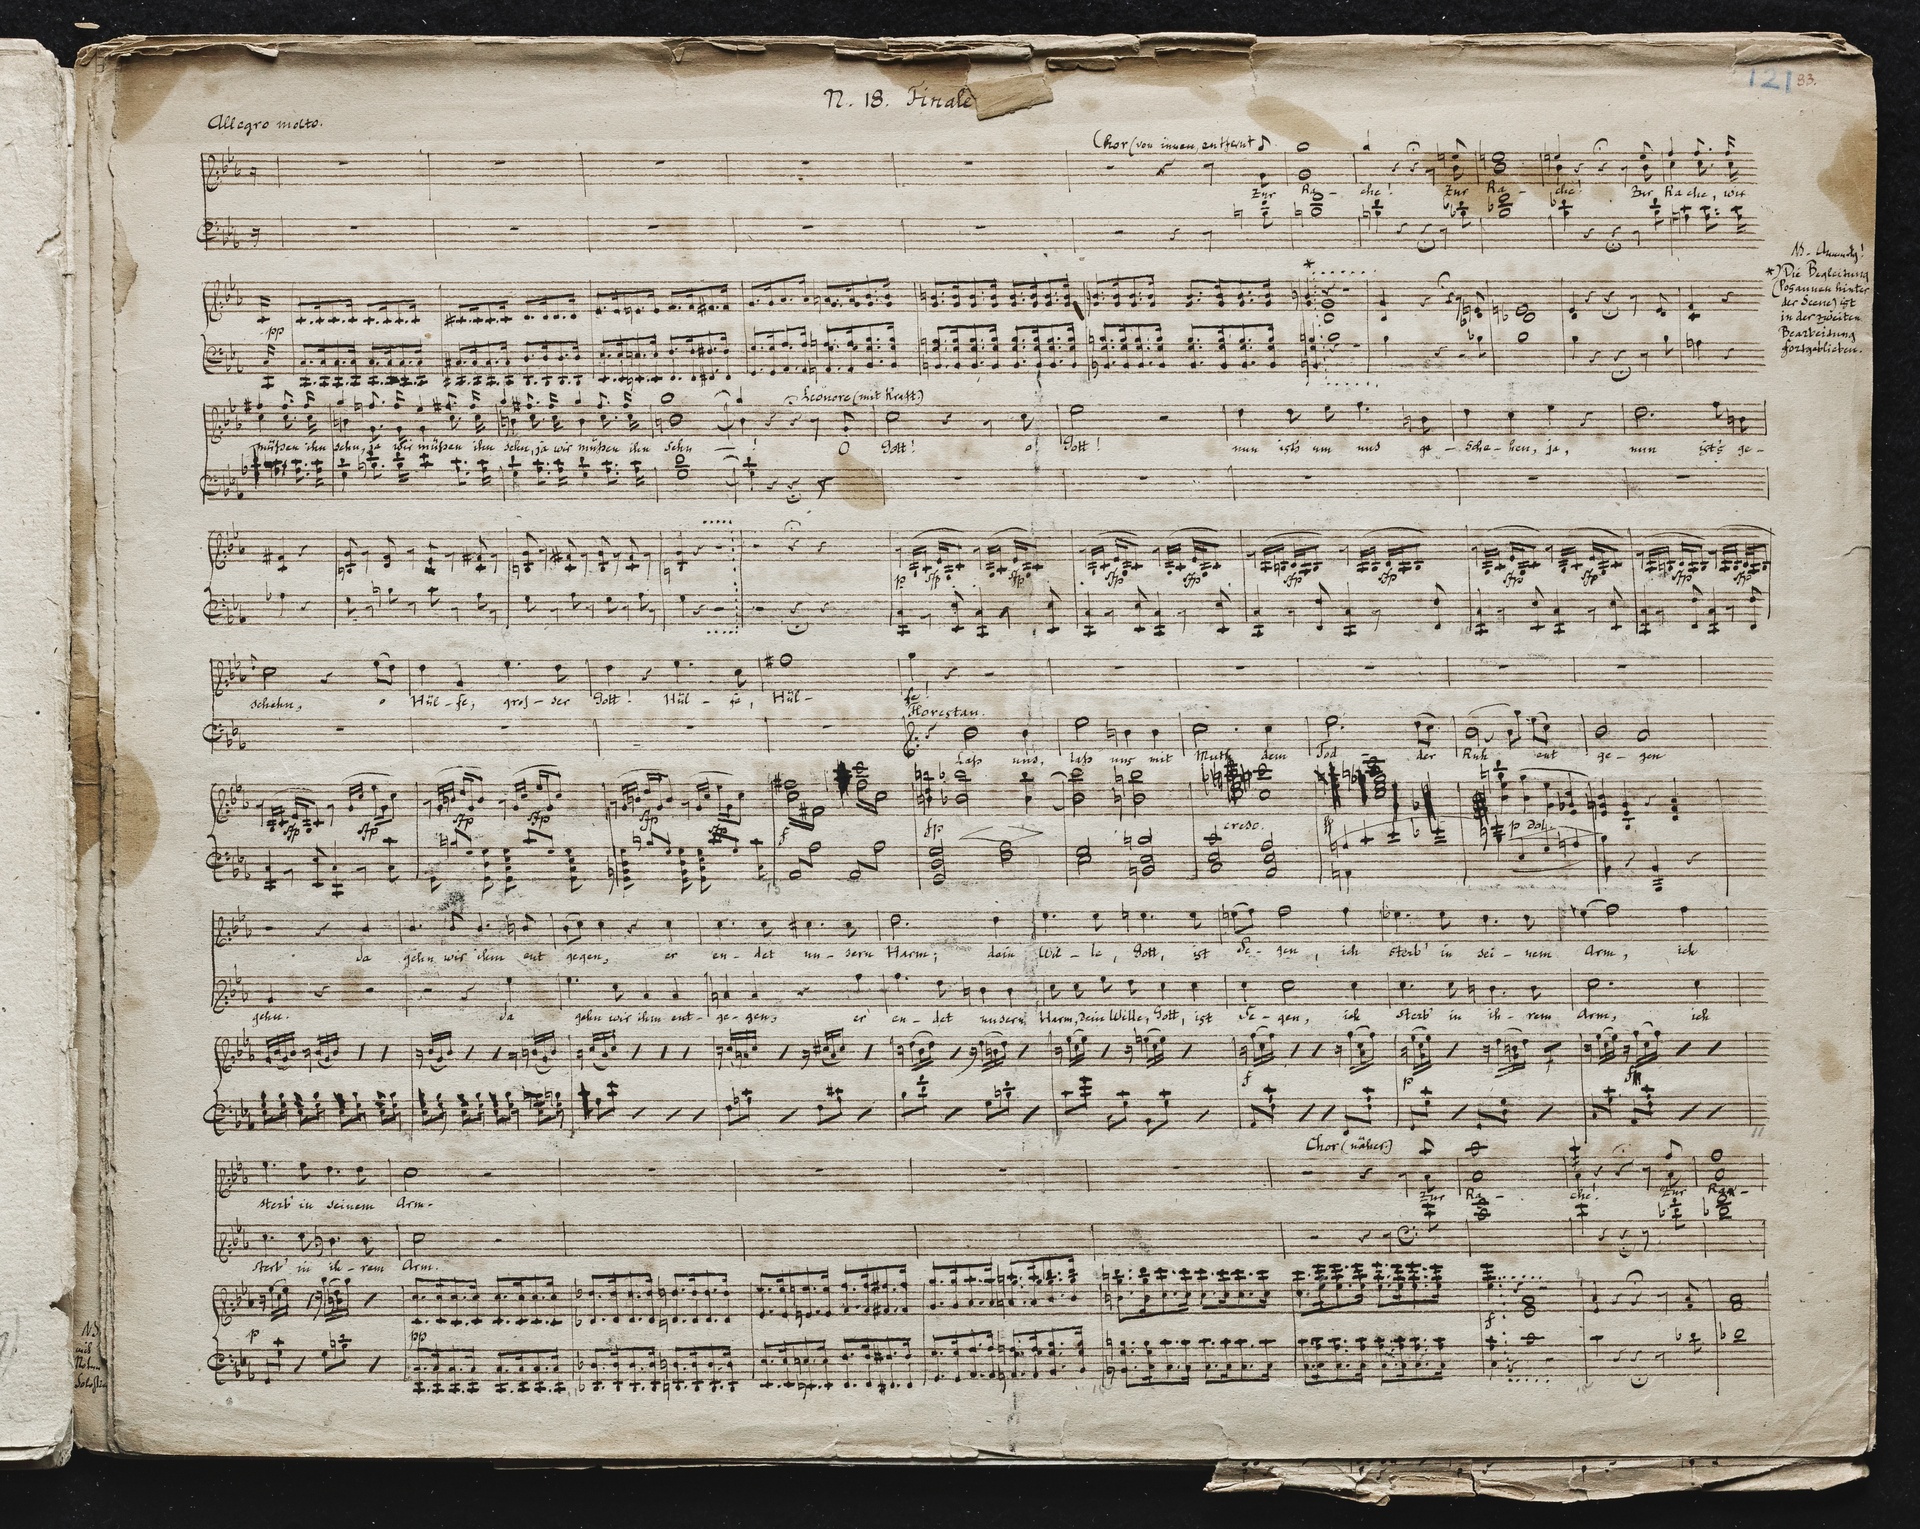 121 83.
N. 18. Finale
Allegro molto.
Chor (von innen, entfernt
Zur Ra - che! Zur Ra - che! Zur Rache, wir
*
NB.
*) Die Begleitung
(Posaunen hinter
der Scene) ist
in der zweiten
Bearbeitung
fortgeblieben.
pp
Leonore (mit Kraft)
müßen ihn sehn, ja wir müßen ihn sehn, ja wir müßen ihn sehn - ! O Gott! o Gott! nun ists um uns ge - sche - hen, ja, nun ist's ge -
p sfp sfp sfp sfp sfp sfp sfp sfp sfp sfp
schehn, o Hül - fe, gros - ser Gott! Hül - fe, Hül - fe!
Florestan.
Laß uns, laß uns mit Muth dem Tod der Ruh ent ge - gen
sfp sfp sfp sfp sfp sfp f fp cresc. p dol.
da gehn wir ihm ent gegen, er en - det un - sern Harm; dein Wil - le, Gott, ist Se - gen, ich sterb' in sei - nem Arm, ich
gehn. da gehn wir ihm ent - ge - gen, er en - det unsern Harm, Dein Wille, Gott, ist Se - gen, ich sterb' in ih - rem Arm, ich
f p
Chor (näher)
sterb' in seinem Arm. Zur Ra - che! Zur Ra -
sterb' in ih - rem Arm.
p pp f
NB